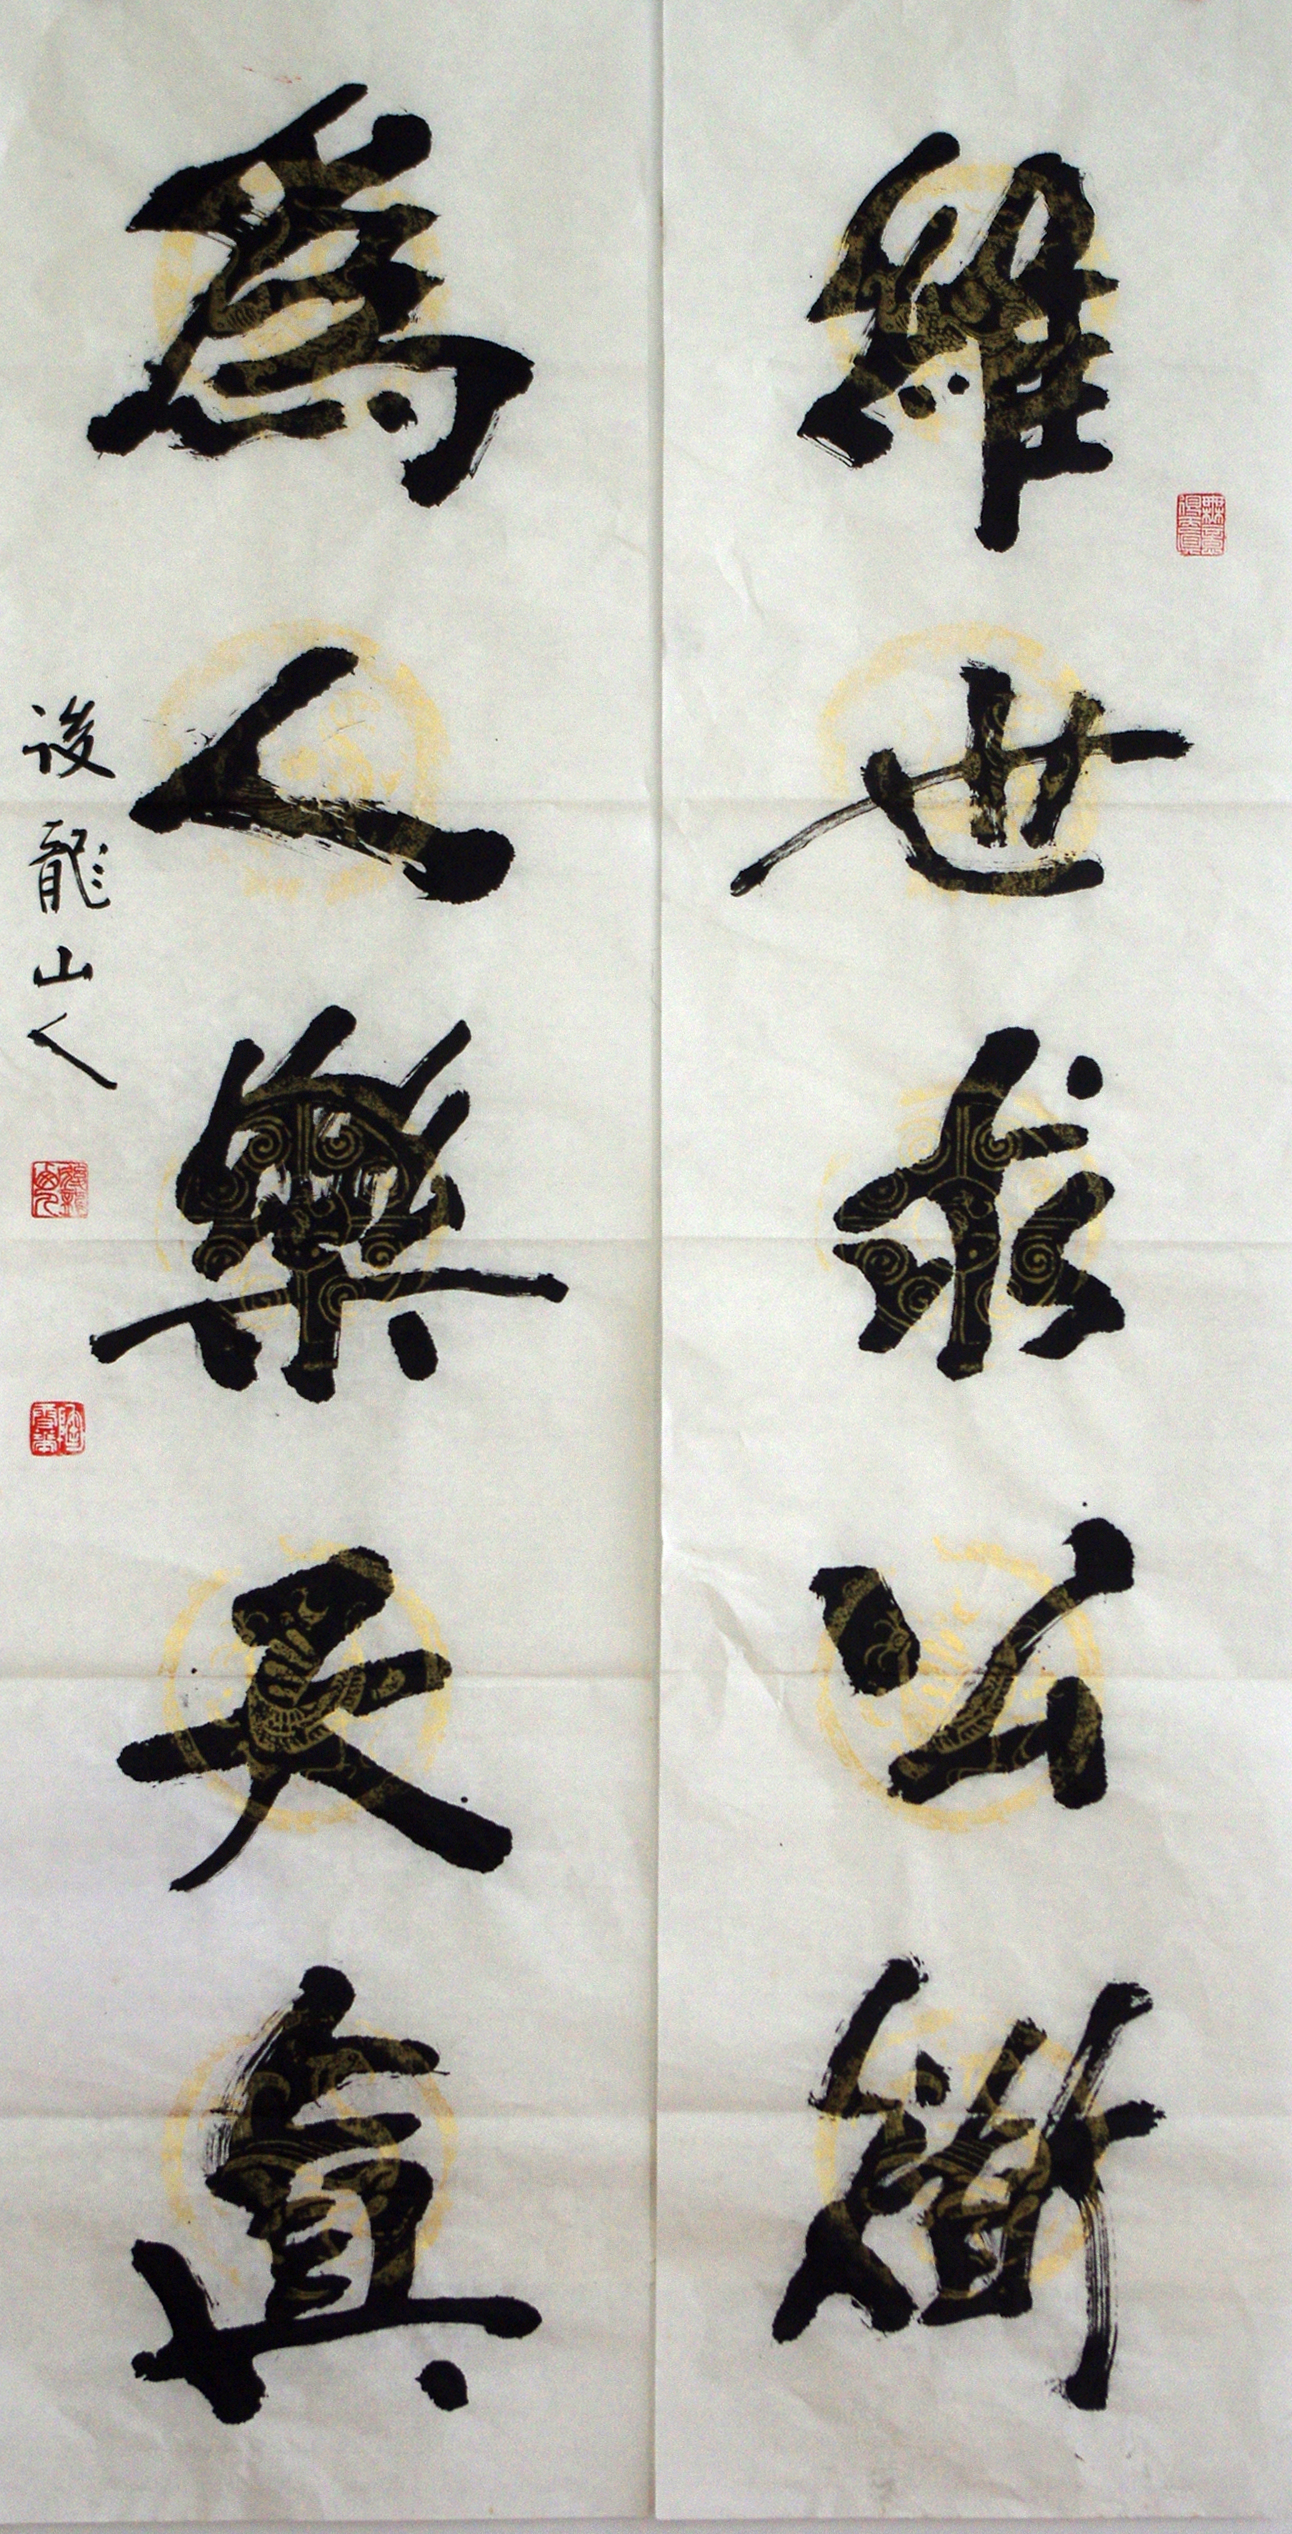 維世求公衡
為人樂天真
後龍山人